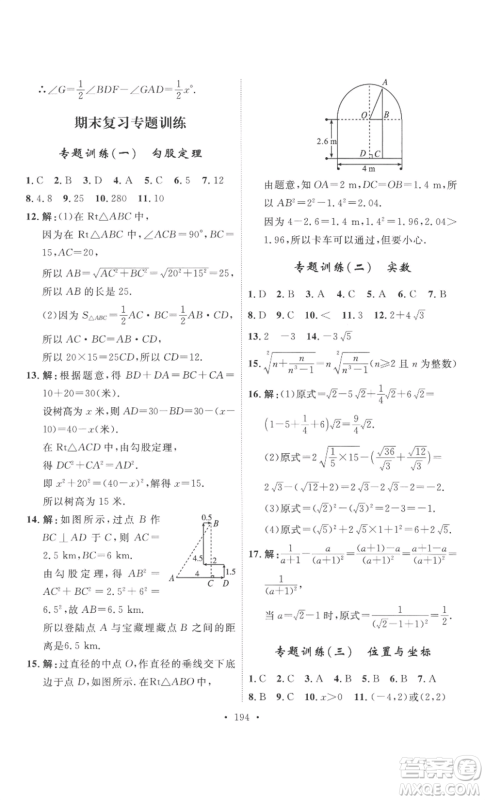 ∴∠G=1/2∠BDF−∠GAD=1/2x°.
期末复习专题训练
专题训练(一) 勾股定理
1. C 2. B 3. C 4. B 5. C 6. 5 7. 12
8. 4.8 9. 25 10. 280 11. 2.5
12. 解:(1)在 Rt△ABC 中,
因为在 Rt△ABC 中,∠C=90°,
所以 AB=√(AC²+BC²)=√(20²+15²)=25.
所以 AB 的长是 25.
(2)因为 S△ABC=1/2AC·BC=1/2AB·CD,
所以 AC·BC=AB·CD.
所以 20×15=25CD. 所以 CD=12.
13. 解:根据题意,得 BD+DA=BC+AC=
10+20=30(米).
设树高为 x 米,则 AD=30−x(米).
在 Rt△ACD 中,由勾股定理,
得 DC²+CA²=AD²,
即 x²+20²=(30−x)²,解得 x=15.
所以树高为 15 米.
14. 解:如图所示,过点 B 作
BC⊥AD 于点 C,则 AC=
2.5 km,BC=6 km.
由勾股定理,得 AB²=
AC²+BC²=2.5²+6²=
6.5²,所以 AB=6.5 km.
所以登陆点 A 与宝藏埋藏点 B 之间的距
离是 6.5 km.
0.5
B
4.5
2
1.5
A
4
C
D
15. 解:过直径的中点 O,作直径的垂线交下底
边于点 D. 如图所示,在 Rt△ABO 中,
A
O
B
2.6 m
D
C
4 m
由题意,知 OA=2 m,DC=OB=1.4 m,所
以 AB²=2²−1.4²=2.04.
因为 4−2.6=1.4,1.4²=1.96,2.04>
1.96,所以卡车可以通过,但要小心.
专题训练(二) 实数
1. D 2. C 3. D 4. A 5. B 6. B 7. D
8. D 9. C 10. < 11. 13 12. 2+4√3
13. 2 −3 14. −3√5
15. ³√(n+n/(n³−1))=n³√(n/(n³−1))(n≥2 且 n 为整数)
16. 解:(1)原式=√2−5√2+1/4√2+6√2=
(1−5+1/4+6)√2=9/4√2.
(2)原式=2√(1/5×15)−(√36/√3+√12/√3)=
2√3−2√3−2=−2.
(3)原式=(√2)²−(√5)²=2−5=−3.
(4)原式=(√5)²+2√5+1−5=2√5+1.
17. 解:1/(a+1)−a/(a+1)²=(a+1)/(a+1)²−a/(a+1)²=
1/(a+1)².
当 a=√2−1 时,原式=1/(√2−1+1)²=1/2.
专题训练(三) 位置与坐标
1. D 2. B 3. C 4. B 5. A 6. D 7. A
8. B 9. B 10. x>0 11. (−4,2)或(2,2)
· 194 ·
答案圈
MXQE.COM